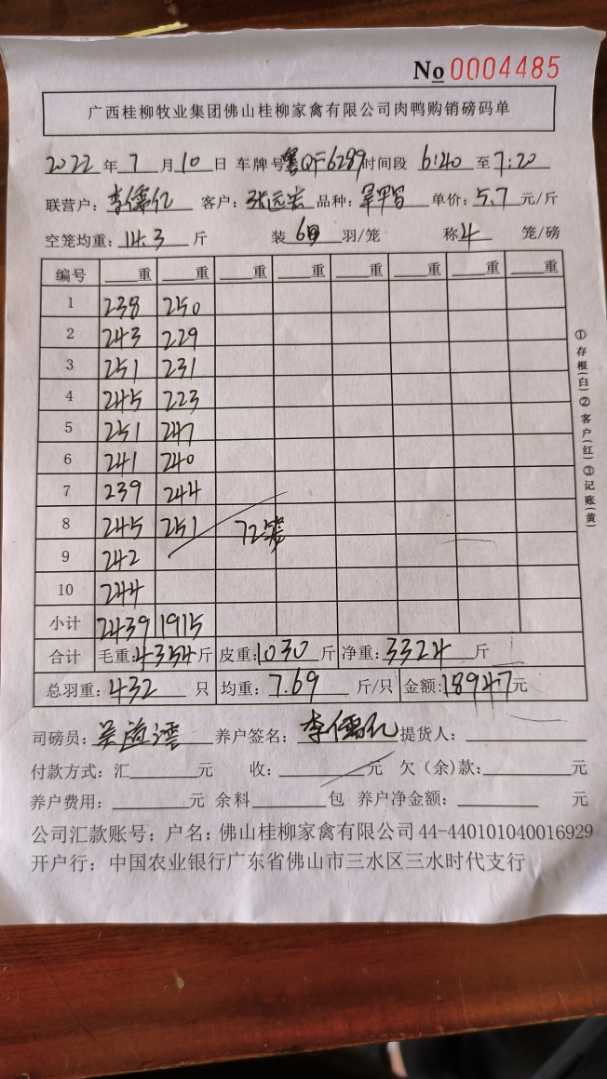 No 0004485
广西桂柳牧业集团佛山桂柳家禽有限公司肉鸭购销磅码单
2022 年 7 月 10 日 车牌号 粤QF6289 时间段 6:40 至 7:20
联营户: 李儒亿 客户: 张远 品种: 单价: 5.7 元/斤
空笼均重: 14.3 斤 装 6 羽/笼 称 4 笼/磅
编号 重 重 重 重 重 重 重 重
1 238 250
2 243 229
3 251 231
4 245 223
5 251 247
6 241 240
7 239 244
8 245 251 72笼
9 242
10 244
小计 2439 1915
合计 毛重: 4354 斤 皮重: 1030 斤 净重: 3324 斤
总羽重: 432 只 均重: 7.69 斤/只 金额: 18947 元
司磅员: 养户签名: 李儒亿 提货人:
付款方式: 汇 元 收: 元 欠(余)款: 元
养户费用: 元 余料 包 养户净金额: 元
公司汇款账号: 户名: 佛山桂柳家禽有限公司 44-440101040016929
开户行: 中国农业银行广东省佛山市三水区三水时代支行
①存根(白)②客户(红)③记账(黄)